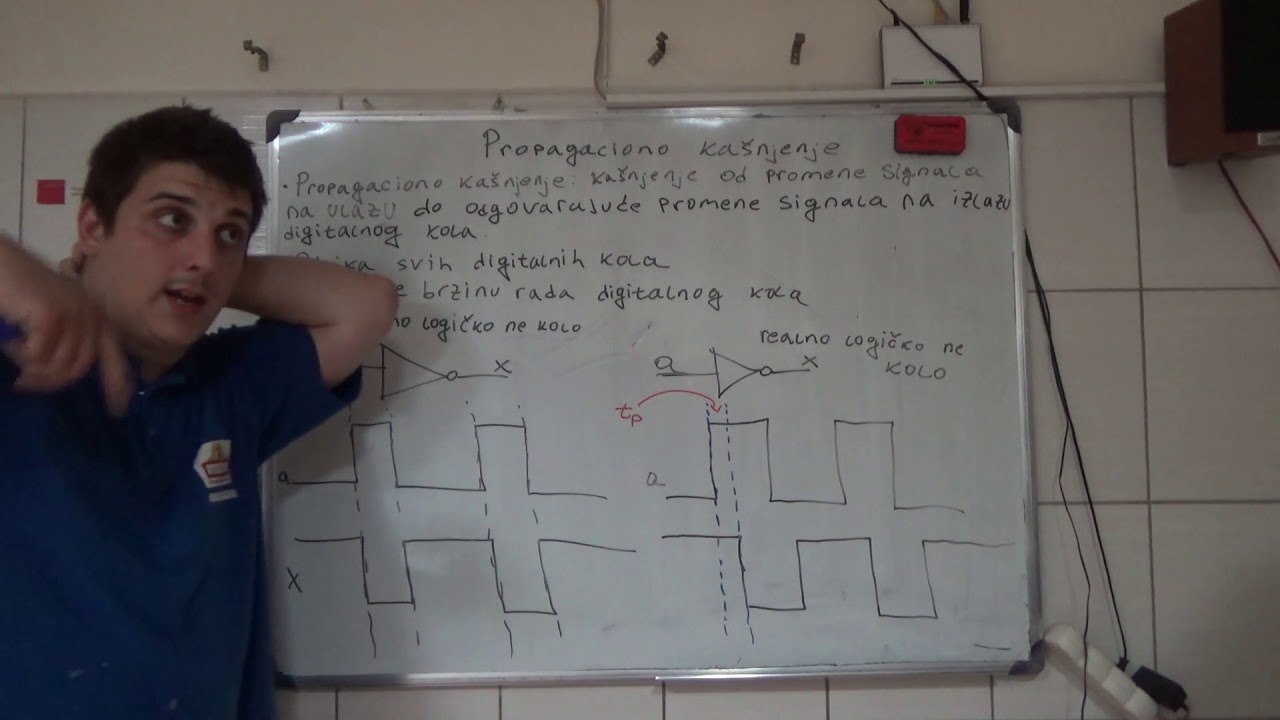 Propagaciono kašnjenje
• Propagaciono kašnjenje: kašnjenje od promene signala
na ulazu do odgovarajuće promene signala na izlazu
digitalnog kola.
svih digitalnih kola
brzinu rada digitalnog kola
logičko ne kolo
realno logičko ne
kolo
x
a
x
tp
a
a
x